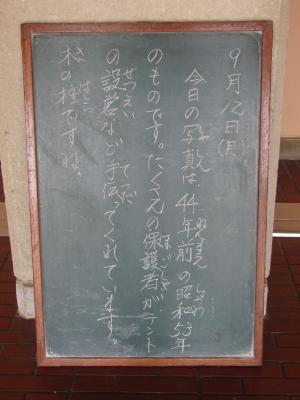 9月12日(月)
今日の写真は、44年前の昭和53年
のものです。たくさんの保護者がテント
の設営など手伝ってくれています。
木の柱ですね。